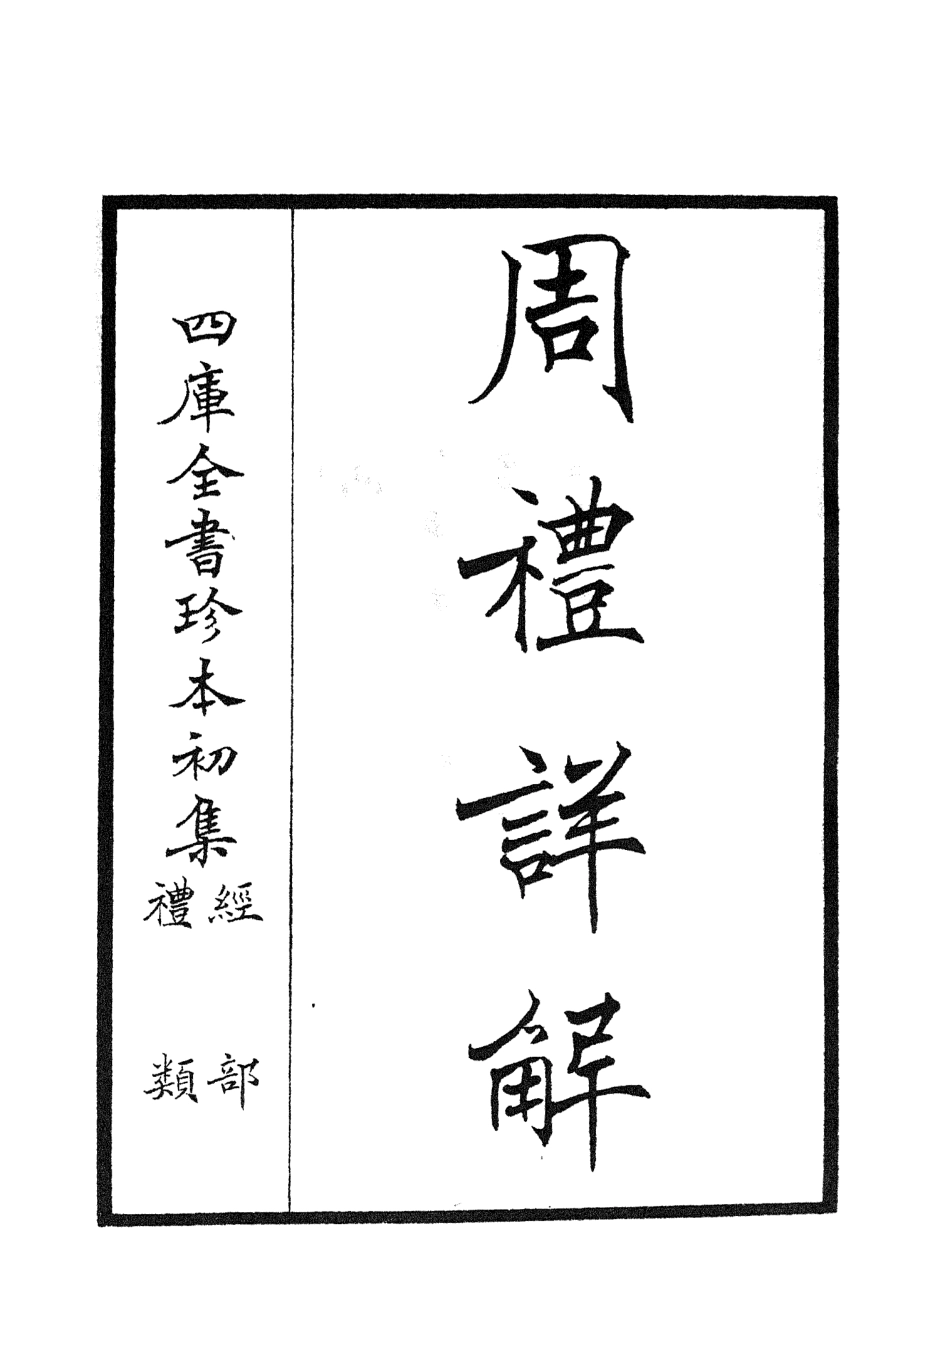 周禮詳解
四庫全書珍本初集
經部
禮類